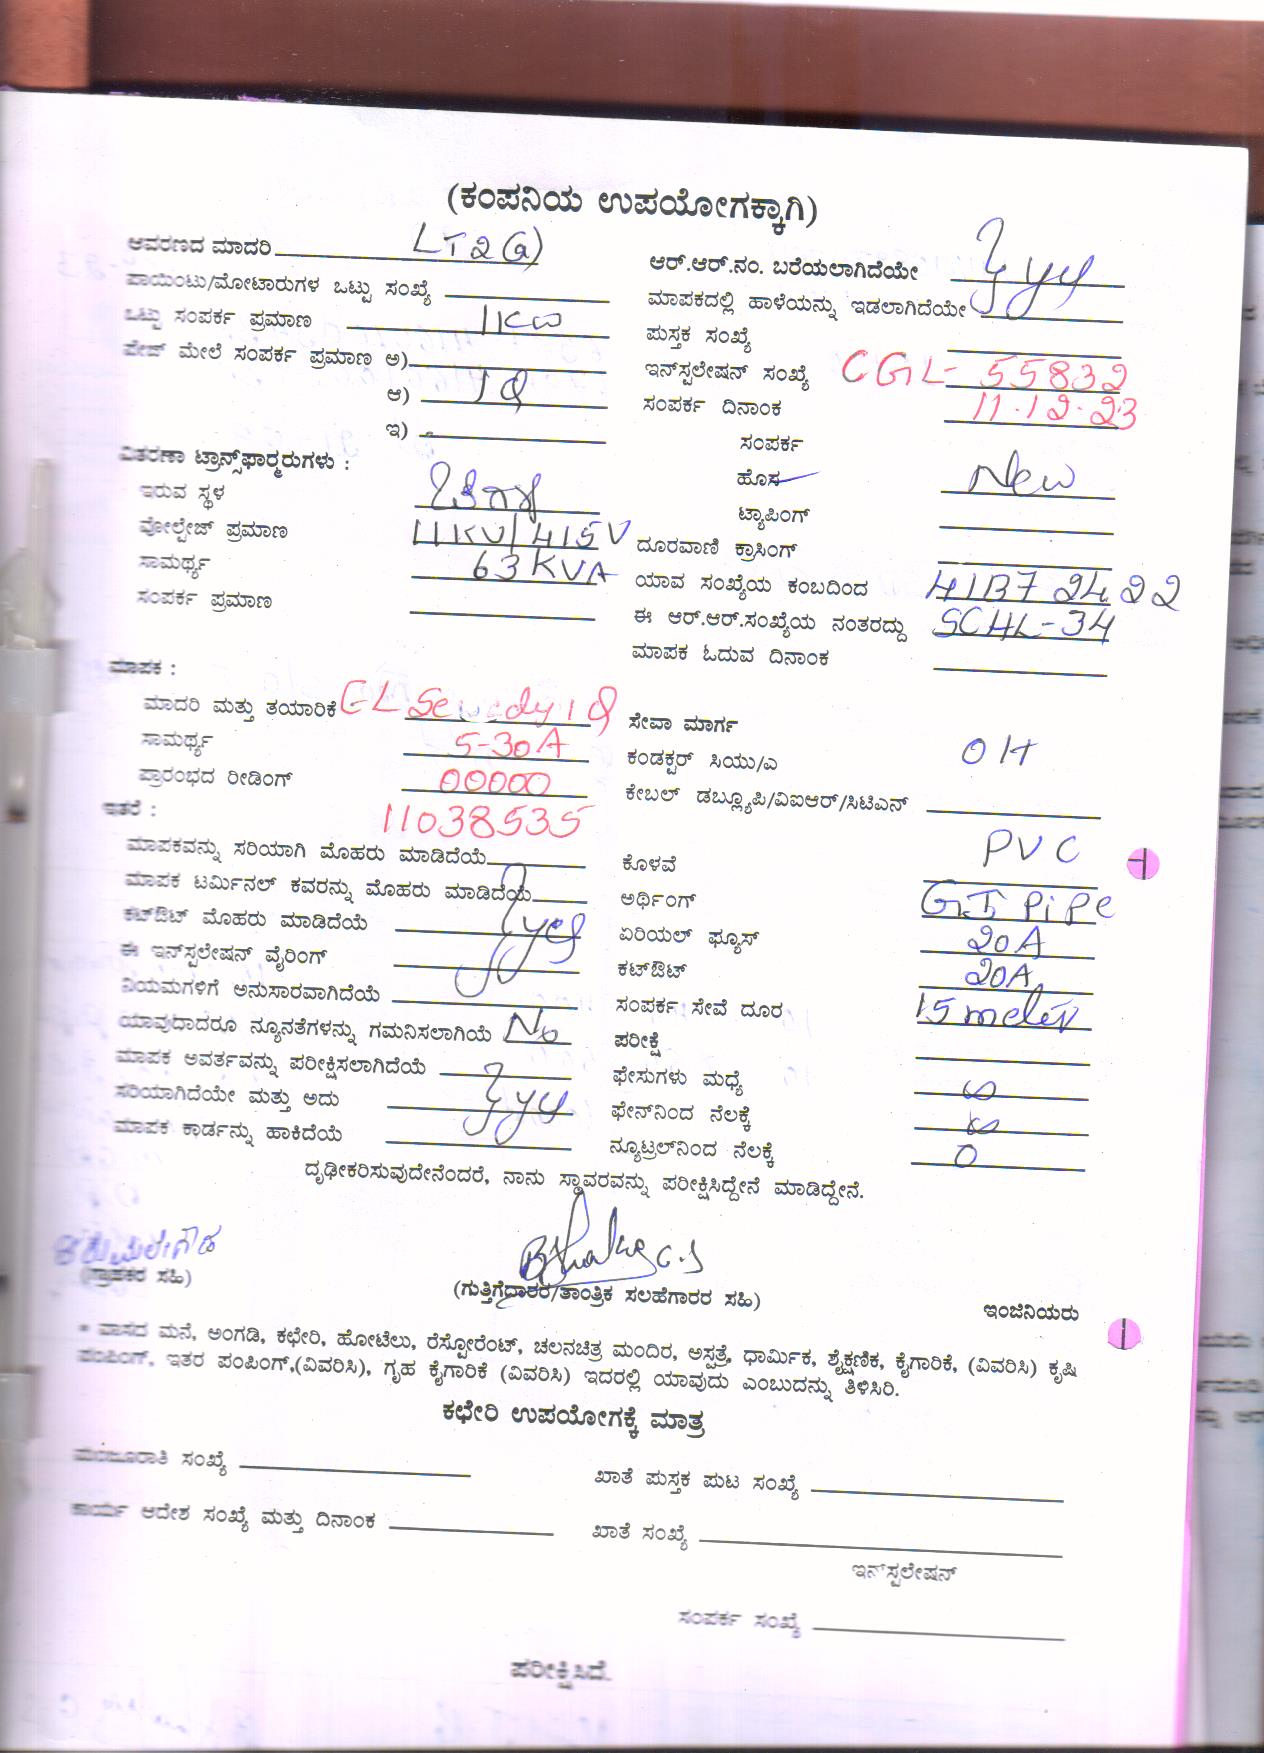 (ಕಂಪನಿಯ ಉಪಯೋಗಕ್ಕಾಗಿ)
ಆವರಣದ ಮಾದರಿ LT2(a)
ಪಾಯಿಂಟು/ಮೋಟಾರುಗಳ ಒಟ್ಟು ಸಂಖ್ಯೆ
ಒಟ್ಟು ಸಂಪರ್ಕ ಪ್ರಮಾಣ 1KW
ಪೇಜ್ ಮೇಲೆ ಸಂಪರ್ಕ ಪ್ರಮಾಣ ಅ)
ಆ)
ಇ)
ವಿತರಣಾ ಟ್ರಾನ್ಸ್‌ಫಾರ್ಮರುಗಳು :
ಇರುವ ಸ್ಥಳ
ವೋಲ್ಟೇಜ್ ಪ್ರಮಾಣ 11KV/415V
ಸಾಮರ್ಥ್ಯ 63KVA
ಸಂಪರ್ಕ ಪ್ರಮಾಣ
ಆರ್.ಆರ್.ನಂ. ಬರೆಯಲಾಗಿದೆಯೇ
ಮಾಪಕದಲ್ಲಿ ಹಾಳೆಯನ್ನು ಇಡಲಾಗಿದೆಯೇ
ಪುಸ್ತಕ ಸಂಖ್ಯೆ
ಇನ್‌ಸ್ಟಲೇಷನ್ ಸಂಖ್ಯೆ CGL-55832
ಸಂಪರ್ಕ ದಿನಾಂಕ 11.12.23
ಸಂಪರ್ಕ
ಹೊಸ New
ಟ್ಯಾಪಿಂಗ್
ದೂರವಾಣಿ ಕ್ರಾಸಿಂಗ್
ಯಾವ ಸಂಖ್ಯೆಯ ಕಂಬದಿಂದ
ಈ ಆರ್.ಆರ್.ಸಂಖ್ಯೆಯ ನಂತರದ್ದು SCHL-34
ಮಾಪಕ ಓದುವ ದಿನಾಂಕ
ಮಾಪಕ :
ಮಾದರಿ ಮತ್ತು ತಯಾರಿಕೆ
ಸಾಮರ್ಥ್ಯ 5-30A
ಪ್ರಾರಂಭದ ರೀಡಿಂಗ್ 00000
ಇತರೆ : 11038535
ಮಾಪಕವನ್ನು ಸರಿಯಾಗಿ ಮೊಹರು ಮಾಡಿದೆಯೆ
ಮಾಪಕ ಟರ್ಮಿನಲ್ ಕವರನ್ನು ಮೊಹರು ಮಾಡಿದೆಯೆ
ಕಟ್‌ಔಟ್ ಮೊಹರು ಮಾಡಿದೆಯೆ
ಈ ಇನ್‌ಸ್ಟಲೇಷನ್ ವೈರಿಂಗ್
ನಿಯಮಗಳಿಗೆ ಅನುಸಾರವಾಗಿದೆಯೆ
ಯಾವುದಾದರೂ ನ್ಯೂನತೆಗಳನ್ನು ಗಮನಿಸಲಾಗಿಯೆ No
ಮಾಪಕ ಅವರ್ತವನ್ನು ಪರೀಕ್ಷಿಸಲಾಗಿದೆಯೆ
ಸರಿಯಾಗಿದೆಯೇ ಮತ್ತು ಅದು
ಮಾಪಕ ಕಾರ್ಡನ್ನು ಹಾಕಿದೆಯೆ
ಸೇವಾ ಮಾರ್ಗ
ಕಂಡಕ್ಟರ್ ಸಿಯು/ಎ OH
ಕೇಬಲ್ ಡಬ್ಲ್ಯೂಪಿ/ವಿಐಆರ್/ಸಿಟಿಎನ್
ಕೊಳವೆ PVC
ಅರ್ಥಿಂಗ್ G.I Pipe
ಏರಿಯಲ್ ಫ್ಯೂಸ್ 20A
ಕಟ್‌ಔಟ್ 20A
ಸಂಪರ್ಕ ಸೇವೆ ದೂರ 15 meter
ಪರೀಕ್ಷೆ
ಫೇಸುಗಳು ಮಧ್ಯೆ ∞
ಫೇನ್‌ನಿಂದ ನೆಲಕ್ಕೆ ∞
ನ್ಯೂಟ್ರಲ್‌ನಿಂದ ನೆಲಕ್ಕೆ 0
ದೃಢೀಕರಿಸುವುದೇನೆಂದರೆ, ನಾನು ಸ್ಥಾವರವನ್ನು ಪರೀಕ್ಷಿಸಿದ್ದೇನೆ ಮಾಡಿದ್ದೇನೆ.
(ಗ್ರಾಹಕರ ಸಹಿ)
(ಗುತ್ತಿಗೆದಾರರ/ತಾಂತ್ರಿಕ ಸಲಹೆಗಾರರ ಸಹಿ)
ಇಂಜಿನಿಯರು
* ವಾಸದ ಮನೆ, ಅಂಗಡಿ, ಕಛೇರಿ, ಹೋಟೆಲು, ರೆಸ್ಟೋರೆಂಟ್, ಚಲನಚಿತ್ರ ಮಂದಿರ, ಅಸ್ಪತ್ರೆ, ಧಾರ್ಮಿಕ, ಶೈಕ್ಷಣಿಕ, ಕೈಗಾರಿಕೆ, (ವಿವರಿಸಿ) ಕೃಷಿ
ಪಂಪಿಂಗ್, ಇತರ ಪಂಪಿಂಗ್,(ವಿವರಿಸಿ), ಗೃಹ ಕೈಗಾರಿಕೆ (ವಿವರಿಸಿ) ಇದರಲ್ಲಿ ಯಾವುದು ಎಂಬುದನ್ನು ತಿಳಿಸಿರಿ.
ಕಛೇರಿ ಉಪಯೋಗಕ್ಕೆ ಮಾತ್ರ
ಮಂಜೂರಾತಿ ಸಂಖ್ಯೆ
ಖಾತೆ ಪುಸ್ತಕ ಪುಟ ಸಂಖ್ಯೆ
ಕಾರ್ಯ ಆದೇಶ ಸಂಖ್ಯೆ ಮತ್ತು ದಿನಾಂಕ
ಖಾತೆ ಸಂಖ್ಯೆ
ಇನ್‌ಸ್ಟಲೇಷನ್
ಸಂಪರ್ಕ ಸಂಖ್ಯೆ
ಪರೀಕ್ಷಿಸಿದೆ.